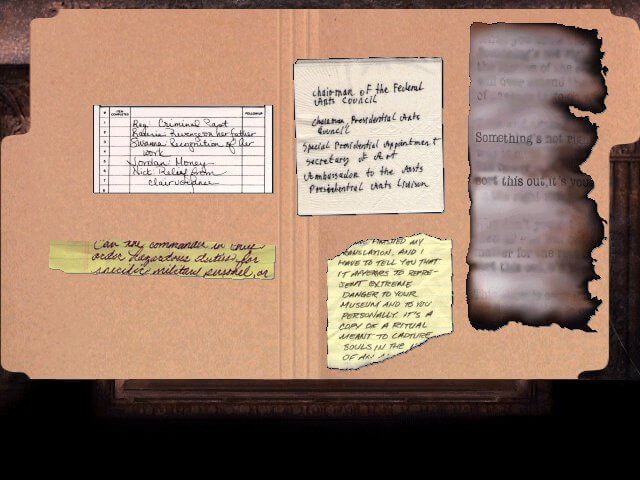 # ITEM COMPLETED FOLLOWUP
1 Reg: Criminal Past
2 Revenge on her father
3 Swama Recognition of her
4 work
5 Jordan: Money
6 Nick: Relief from
7 Clairvoyance
8
Can the commander in chief
order hazardous duties for
specific military personel, or
chairman of the Federal
Arts Council
Chairman, Presidential Arts
Council
Special Presidential Appointment
Secretary of Art
Ambassador to the Arts
Presidential Arts Liaison
FINISHED MY
TRANSLATION, AND I
HAVE TO TELL YOU THAT
IT APPEARS TO REPRE-
SENT EXTREME
DANGER TO YOUR
MUSEUM AND TO YOU
PERSONALLY. IT'S A
COPY OF A RITUAL
MEANT TO CAPTURE
SOULS IN THE
OF AN
Something's not rig
sort this out, it's you